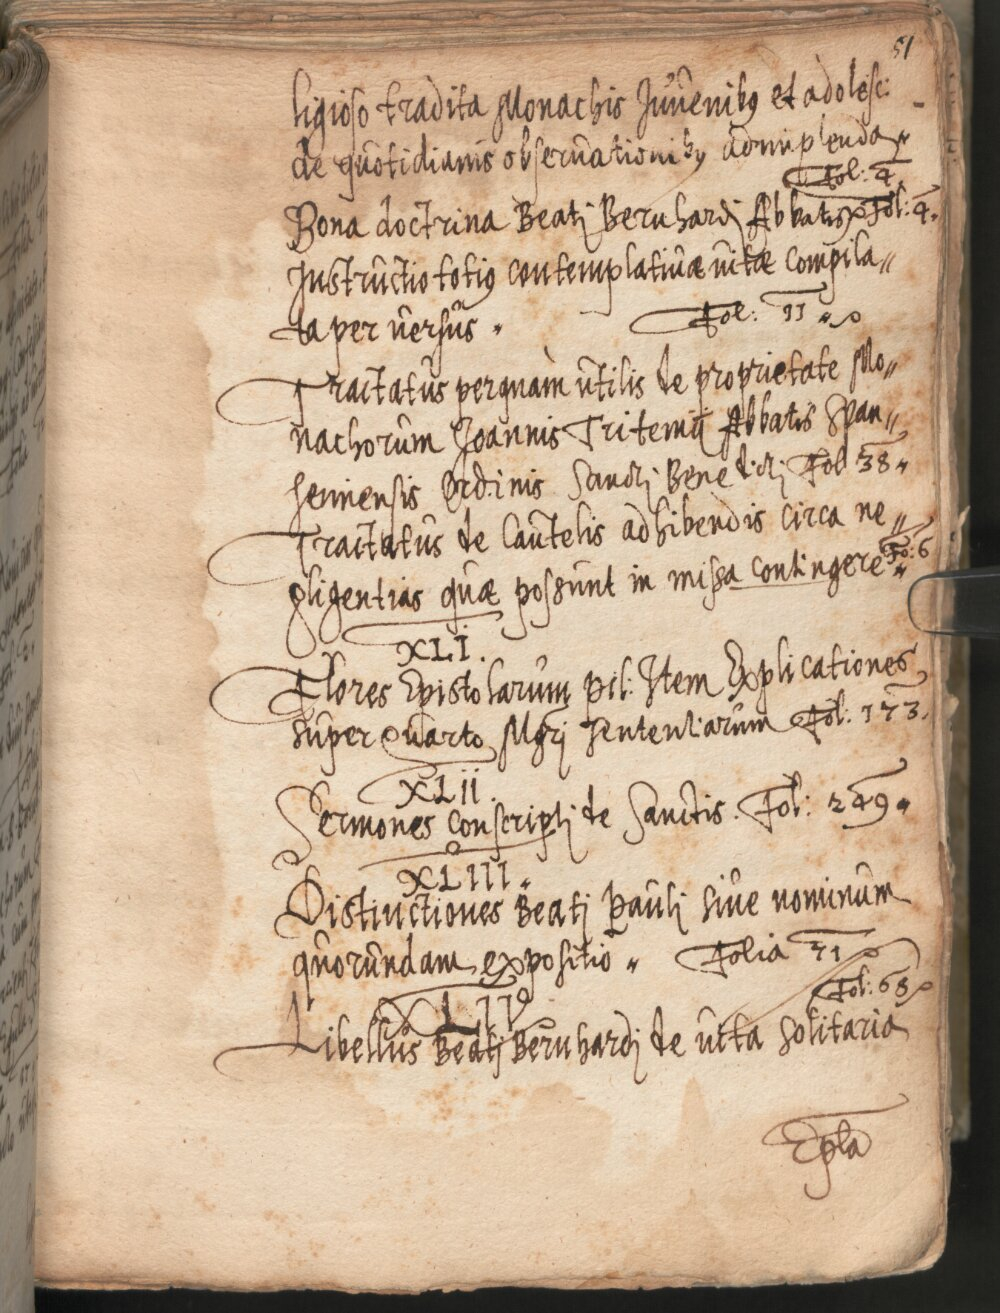 51
ligioso tradita Monachis Juvenibꝫ et adolesc:
de quotidianis observationibꝫ adimplenda〃
Fol: 4.
Bona doctrina Beatj Bernhardj Abbatis Fol: 4.
Instructio totiꝰ contemplativæ vitæ compila〃
ta per versus〃
Fol: 11〃
Tractatus perquam utilis de proprietate Mo〃
nachorum Joannis Tritemij Abbatis Span〃
heimensis Ordinis Sanctj Benedictj Fol 38〃
Tractatus de Cautelis adhibendis circa ne〃
gligentias quæ possunt in missa contingere Fo: 6
XLI.
Flores Epistolarum pil: Item Explicationes
super Quarto Mgrj Sententiarum Fol: 173.
XLII.
Sermones conscriptj de Sanctis. Fol: 249〃
XLIII〃
Distinctiones Beatj Paulj sive nominum
quorundam expositio〃 Folia 71
XLIV
Fol: 68
Libellus Beatj Bernhardj de vita solitaria
Epla